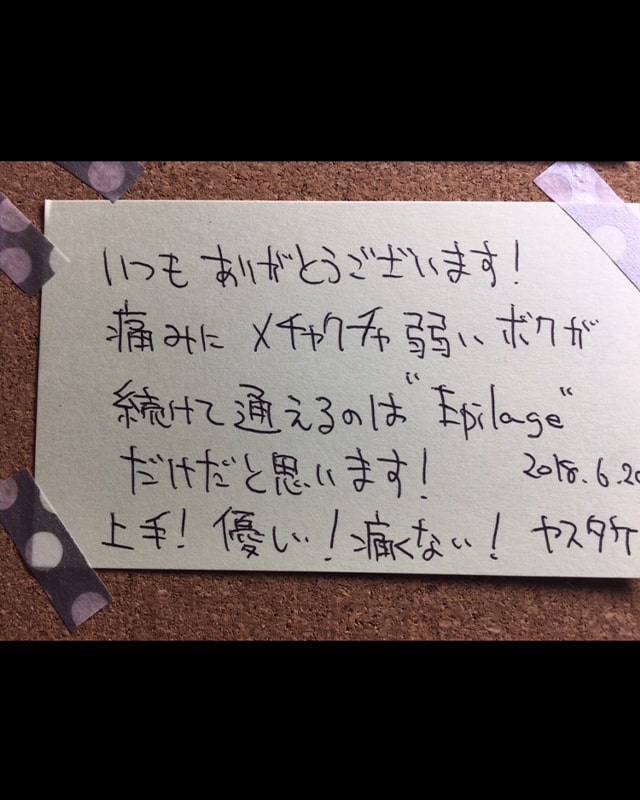 いつもありがとうございます!
痛みにメチャクチャ弱いボクが
続けて通えるのは"Epilage"
だけだと思います! 2018.6.20
上手!優しい!痛くない! ヤスタケ